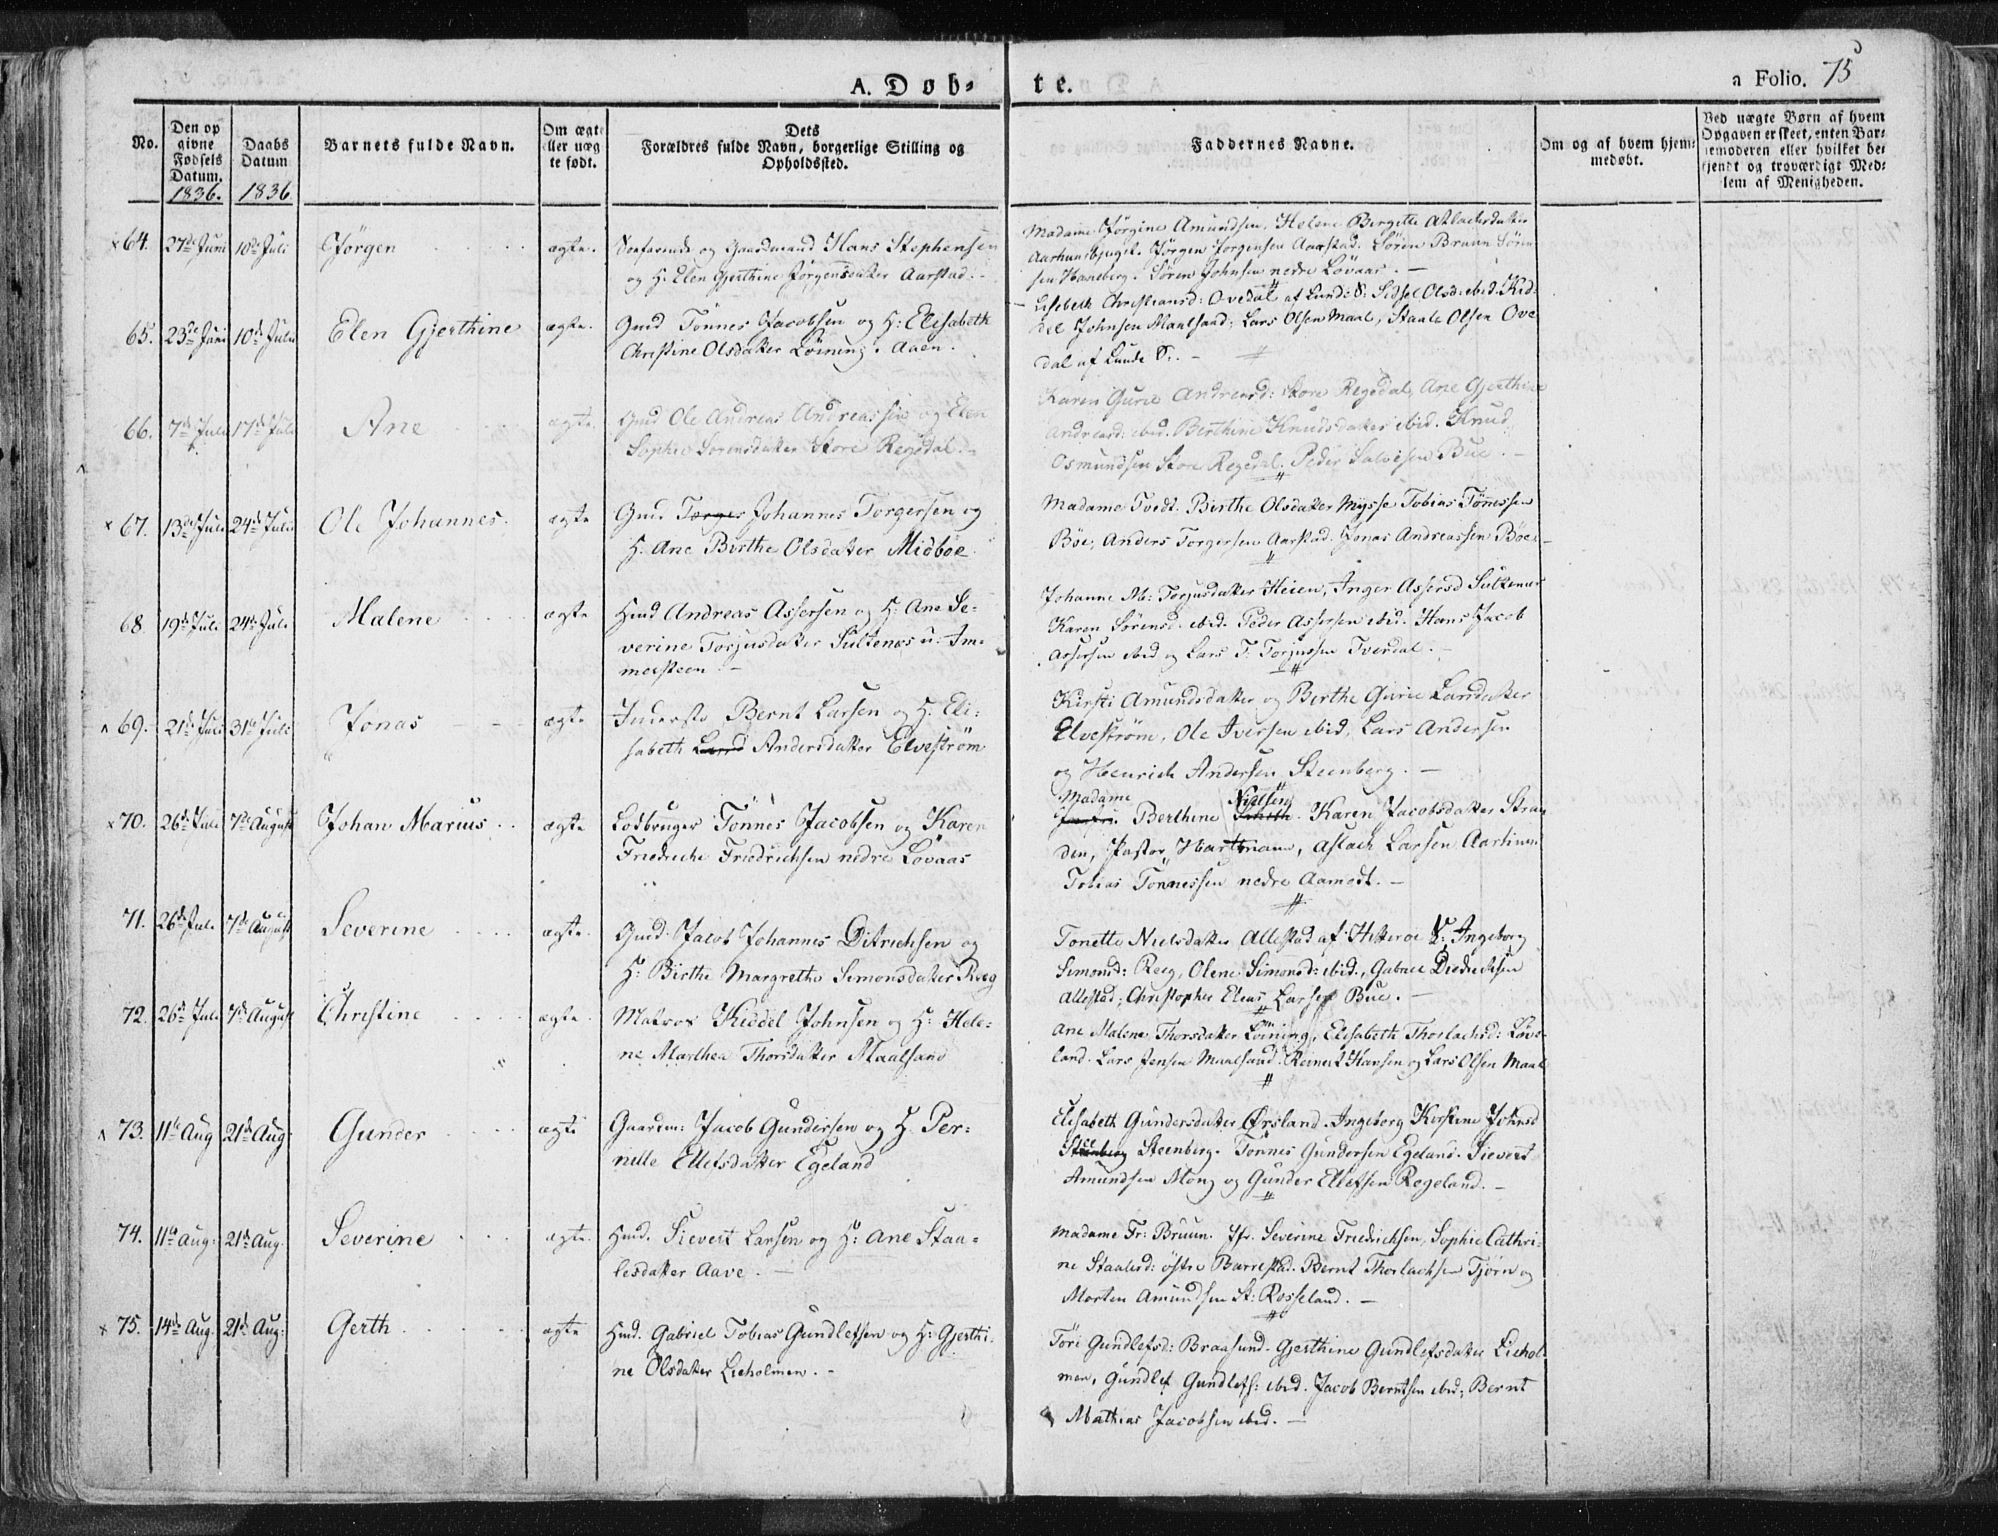 A. Døb-
te.
a Folio. 75
No.
Den op
givne
Fødsels
Datum.
1836.
Daabs
Datum
1836
Barnets fulde Navn.
Om ægte
eller uæg
te født.
Dets
Forældres fulde Navn, borgerlige Stilling og
Opholdssted.
Faddernes Navne.
Om og af hvem hjem-
medøbt.
Ved uægte Børn af hvem
Opgaven er skeet, enten Bar-
nemoderen eller hvilket be-
kjendt og troværdigt Med-
lem af Menigheden.
× 64. 27de Juni 10de Juli Jørgen ægte.
og Gaardmand Hans Stephensen
og H: Elen Gjerthine Jørgensdatter Aarstad.
Madame Jørgine Amundsen, Helene Bergette Atlaksdatter
Jørgen Jørgensen Aarstad. Sören Bruun Sören
sen Haneberg. Sören Johnsen nedre Lövaas. —
65. 23de Juni 10de Juli Elen Gjerthine ægte.
Gmd Tönnes Jacobsen og H: Elisabeth
Christine Olsdatter Löining. Aaen.
Lisebeth Christiansd: Ovedal af Lund: S: Sidsel Olsd: ibid. Kid-
del Johnsen Maalsand, Lars Olsen Maal, Staale Olsen Ove
dal af Lunde S:. —
66. 7de Juli 17de Juli Ane ægte.
Gmd Ole Andreas Andreassen og Elen
Sophie Sorensdatter Store Regedal.
Karen Gurie Andreasd: Store Regedal, Ane Gjerthine
Andreasd: ibid. Berthine Knudsdatter ibid. Knud
Osmundsen Store Regedal. Peder Salvesen Bue. —
× 67. 13de Juli 24de Juli Ole Johannes. ægte
Gmd Torger Johannes Torgersen og
H. Ane Birthe Olsdater Midböe.
Madame Tvedt. Birthe Olsdatter Mysse Tobias Tönnessen
Böe, Anders Torgersen Aarstad. Jonas Andreassen Böe. —
68. 19de Juli 24de Juli Malene ægte
Hmd Andreas Assersen og H: Ane Se-
verine Torjusdatter Sultenes u. Im-
mersteen —
Johanne M: Torjusdatter Heien, Inger Assersd Sultenes
Karen Sörensd. ibid. Peder Assersen ibid. Hans Jacob
Assersen ibid og Lars T. Torjussen Tverdal. —
69. 21de Juli 31te Juli Jonas ægte
Inderste Bernt Larsen og H. Eli-
sabeth Andersdatter Elveström
Kirsti Amundsdatter og Birthe Gurie Larsdatter
Elveström, Ole Iversen ibid, Lars Andersen
og Henrich Andersen Steenberg. —
× 70. 26de Juli 7de August Johan Marius ægte
Lodbruger Tönnes Jacobsen og Karen
Friedriche Friedrichsen nedre Lövaas
Madame Nielsen
Berthine Karen Jacobsdatter Stran
den, Pastor Hartmann, Aslach Larsen Aartun
Tobias Tönnessen nedre Aamodt. —
71. 26de Juli 7de August Severine ægte.
Gmd. Jacob Johannes Ditrichsen og
H: Birthe Margrethe Simonsdatter Reeg
Tonette Nielsdatter Allestad af Hitteröe Ingeborg
Simonsd: Reeg, Olene Simonsd: ibid., Gabriel Diedrichsen
Allestad, Christopher Elias Larsen Bue. —
72. 26de Juli 7de August Christine ægte.
Matros Kiddel Johnsen og H: Hele-
ne Marthea Thorsdatter Maalsand
Ane Malene Thorsdatter Löining, Elisabeth Thorlachsd: Löve-
land. Lars Jensen Maalsand. Reinert Hansen og Lars Olsen Maal
73. 11te Aug 21de Aug: Gunder ægte
Gaardm: Jacob Gundersen og H. Per-
nille Ellefsdatter Egeland
Elisabeth Gundersdatter Örsland. Ingeborg Kirstine Johnsd
Steenberg. Tönnes Gundersen Egeland. Sievert
Amundsen Mong og Gunder Ellefsen Regeland. —
74. 11te Aug: 21de Aug. Severine ægte.
Hmd. Sievert Larsen og H: Ane Staa-
lesdatter Aave. —
Madame Fr: Bruun. Jfr. Severine Friedrichsen, Sophie Cathri-
ne Staalesd: östre Barrestad. Bernt Thorlachsen Tjörn og
Morten Amundsen St: Rosseland. —
× 75. 14de Aug. 21de Aug: Gerth ægte
Hmd. Gabriel Tobias Gundlefsen og H: Gjerthi-
ne Olsdatter Lieholmen. —
Töre Gundlefsd: Braasund. Gjerthine Gundlefsdatter Liehol
men, Gundlef Gundlefs: ibid. Jacob Berntsen ibid; Bernt
Mathias Jacobsen ibid. —